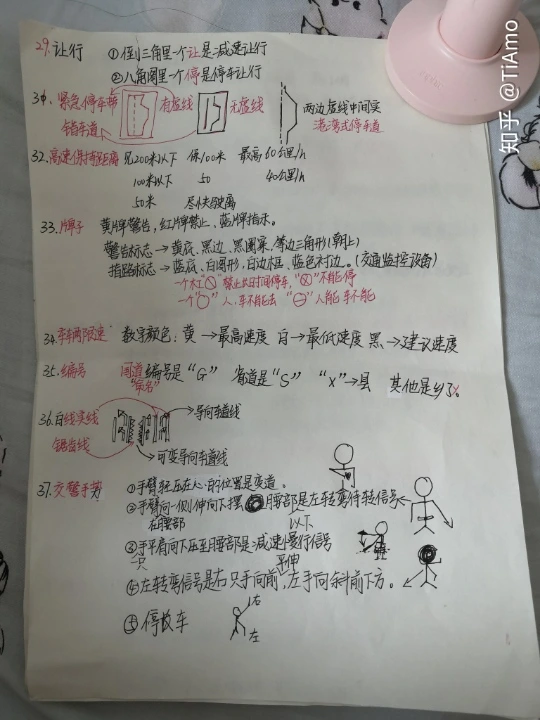 29.让行 ①倒三角里一个让是减速让行
②八角圈里一个停是停车让行
紧急停车带 有虚线 无虚线 两边虚线中间实
错车道 港湾式停车道
32.高速保持距离 见200米以下 保100米 最高60公里/h
100米以下 50 40公里/h
50米 尽快驶离
33.牌子 黄牌警告,红牌禁止、蓝牌指示。
警告标志→黄底、黑边、黑图案、等边三角形(朝上)
指路标志→蓝底、白图形、白边框、蓝色衬边。(交通监控设备)
一个红 禁止长时间停车, 不能停
一个"○"人,车不能去 "⊖"人能车不能
34.车辆限速 数字颜色:黄→最高速度 白→最低速度 黑→建议速度
35.编号 国道编号是"G" 省道是"S" "X"→县 其他是乡
"命名"
36.白线实线 →导向车道线
锯齿线 →可变导向车道线
37.交警手势 ①手臂 的位置是变道。
②手臂向一侧伸向下摆 腰部是左转弯待转信号
在腰部 以下
③手平肩向下压至腰部是减速慢行信号
一只 平伸
④左转弯信号是右只手向前,左手向斜前下方。
⑤停 车 右
左
知乎 @TiAmo